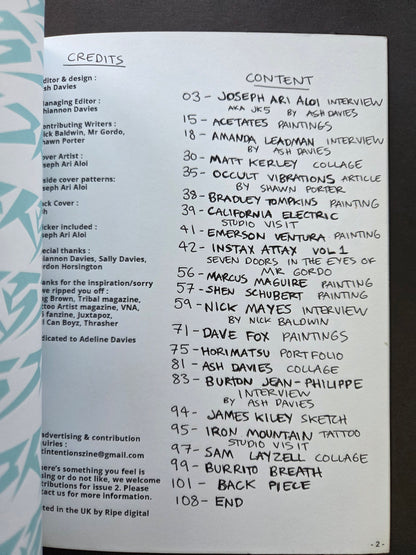 CREDITS
ditor & design :
sh Davies
anaging Editor :
hiannon Davies
ontributing Writers :
ick Baldwin, Mr Gordo,
hawn Porter
over Artist :
seph Ari Aloi
side cover patterns:
seph Ari Aloi
ack Cover :
sh
icker included :
seph Ari Aloi
pecial thanks :
iannon Davies, Sally Davies,
ordon Horsington
hanks for the inspiration/sorry
we ripped you off :
ng Brown, Tribal magazine,
too Artist magazine, VNA,
fanzine, Juxtapoz,
l Can Boyz, Thrasher
edicated to Adeline Davies
advertising & contribution
quiries :
tintentionszine@gmail.com
here's something you feel is
sing or do not like, we welcome
ontributions for issue 2. Please
tact us for more information.
ted in the UK by Ripe digital
CONTENT
03 - JOSEPH ARI ALOI INTERVIEW
AKA JK5 BY ASH DAVIES
15 - ACETATES PAINTINGS
18 - AMANDA LEADMAN INTERVIEW
BY ASH DAVIES
30 - MATT KERLEY COLLAGE
35 - OCCULT VIBRATIONS ARTICLE
BY SHAWN PORTER
38 - BRADLEY TOMPKINS PAINTING
39 - CALIFORNIA ELECTRIC
STUDIO VISIT
41 - EMERSON VENTURA PAINTING
42 - INSTAX ATTAX VOL 1
SEVEN DOORS IN THE EYES OF
MR GORDO
56 - MARCUS MAGUIRE PAINTING
57 - SHEN SCHUBERT PAINTING
59 - NICK MAYES INTERVIEW
BY NICK BALDWIN
71 - DAVE FOX PAINTINGS
75 - HORIMATSU PORTFOLIO
81 - ASH DAVIES COLLAGE
83 - BURTON JEAN-PHILIPPE
INTERVIEW
BY ASH DAVIES
94 - JAMES KILEY SKETCH
95 - IRON MOUNTAIN TATTOO
STUDIO VISIT
97 - SAM LAYZELL COLLAGE
99 - BURRITO BREATH
101 - BACK PIECE
108 - END
- 2 -